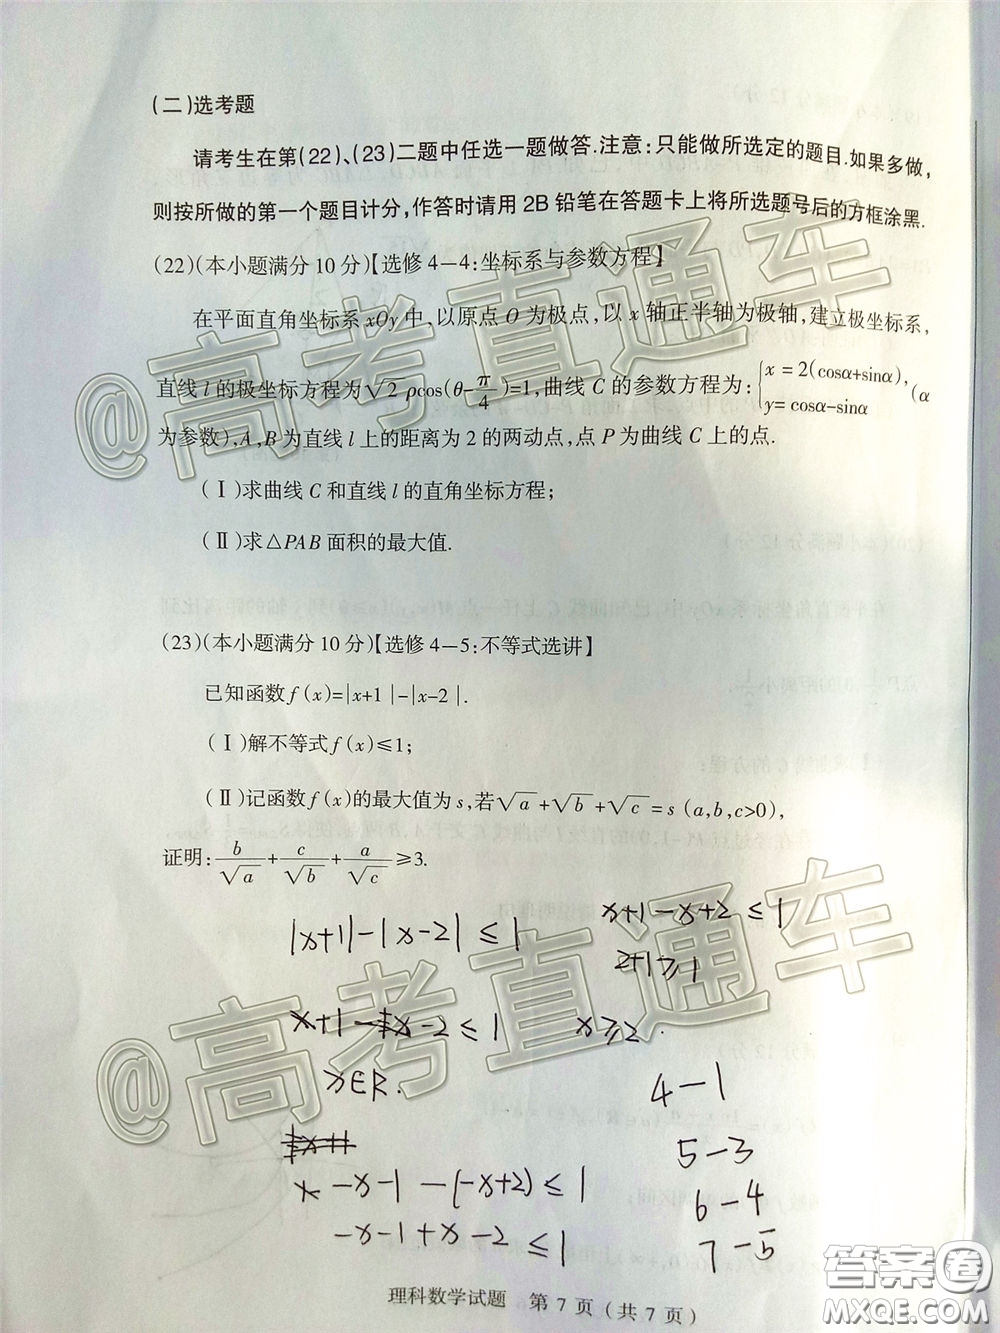 (二)选考题
请考生在第(22)、(23)二题中任选一题做答.注意:只能做所选定的题目.如果多做,
则按所做的第一个题目计分,作答时请用 2B 铅笔在答题卡上将所选题号后的方框涂黑.
(22)(本小题满分 10 分)【选修 4-4:坐标系与参数方程】
在平面直角坐标系 xOy 中,以原点 O 为极点,以 x 轴正半轴为极轴,建立极坐标系,
直线 l 的极坐标方程为√2 ρcos(θ-π/4)=1,曲线 C 的参数方程为:{x = 2(cosα+sinα), y= cosα-sinα (α
为参数),A,B 为直线 l 上的距离为 2 的两动点,点 P 为曲线 C 上的点.
(Ⅰ)求曲线 C 和直线 l 的直角坐标方程;
(Ⅱ)求△PAB 面积的最大值.
(23)(本小题满分 10 分)【选修 4-5:不等式选讲】
已知函数 f (x)=|x+1 |-|x-2 |.
(Ⅰ)解不等式 f (x)≤1;
(Ⅱ)记函数 f (x)的最大值为 s,若√a +√b +√c = s (a,b,c>0),
证明: b/√a + c/√b + a/√c ≥3.
|x+1|-|x-2| ≤ 1
x+1-x+2 ≤ 1
2+1≥1
x+1-x-2 ≤ 1
x≥2.
x∈R.
4-1
5-3
-x-1-(-x+2) ≤ 1
6-4
-x-1+x-2 ≤ 1
7-5
理科数学试题 第 7 页(共 7 页)
@高考直通车
@高考直通车
答案圈
MXQE.COM